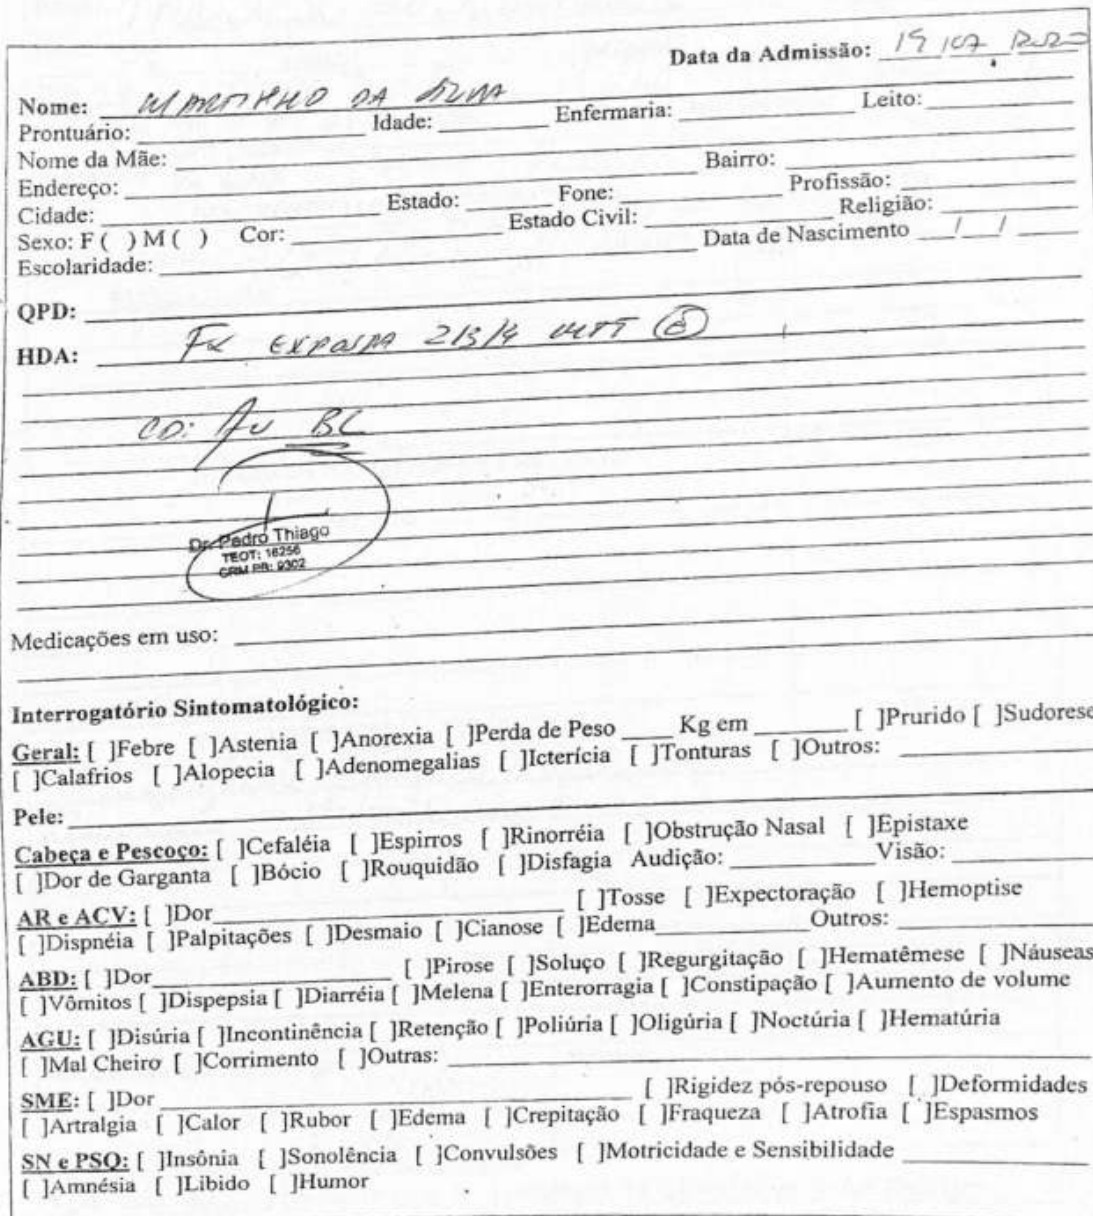 Data da Admissão: 19 / 07 2020
Nome: MARTINHO DA SILVA
Prontuário: Idade: Enfermaria: Leito:
Nome da Mãe:
Endereço: Bairro:
Cidade: Estado: Fone: Profissão:
Sexo: F ( ) M ( ) Cor: Estado Civil: Religião:
Escolaridade: Data de Nascimento / /
QPD:
HDA: Fx EXPOSTA 2/3/4 MTT (E)
CD: BL
Dr. Pedro Thiago
TEOT: 16256
CRM PB: 9302
Medicações em uso:
Interrogatório Sintomatológico:
Geral: [ ]Febre [ ]Astenia [ ]Anorexia [ ]Perda de Peso ____ Kg em ____ [ ]Prurido [ ]Sudorese
[ ]Calafrios [ ]Alopecia [ ]Adenomegalias [ ]Icterícia [ ]Tonturas [ ]Outros:
Pele:
Cabeça e Pescoço: [ ]Cefaléia [ ]Espirros [ ]Rinorréia [ ]Obstrução Nasal [ ]Epistaxe
[ ]Dor de Garganta [ ]Bócio [ ]Rouquidão [ ]Disfagia Audição: Visão:
AR e ACV: [ ]Dor [ ]Tosse [ ]Expectoração [ ]Hemoptise
[ ]Dispnéia [ ]Palpitações [ ]Desmaio [ ]Cianose [ ]Edema Outros:
ABD: [ ]Dor [ ]Pirose [ ]Soluço [ ]Regurgitação [ ]Hematêmese [ ]Náuseas
[ ]Vômitos [ ]Dispepsia [ ]Diarréia [ ]Melena [ ]Enterorragia [ ]Constipação [ ]Aumento de volume
AGU: [ ]Disúria [ ]Incontinência [ ]Retenção [ ]Poliúria [ ]Oligúria [ ]Noctúria [ ]Hematúria
[ ]Mal Cheiro [ ]Corrimento [ ]Outras:
SME: [ ]Dor [ ]Rigidez pós-repouso [ ]Deformidades
[ ]Artralgia [ ]Calor [ ]Rubor [ ]Edema [ ]Crepitação [ ]Fraqueza [ ]Atrofia [ ]Espasmos
SN e PSQ: [ ]Insônia [ ]Sonolência [ ]Convulsões [ ]Motricidade e Sensibilidade
[ ]Amnésia [ ]Libido [ ]Humor